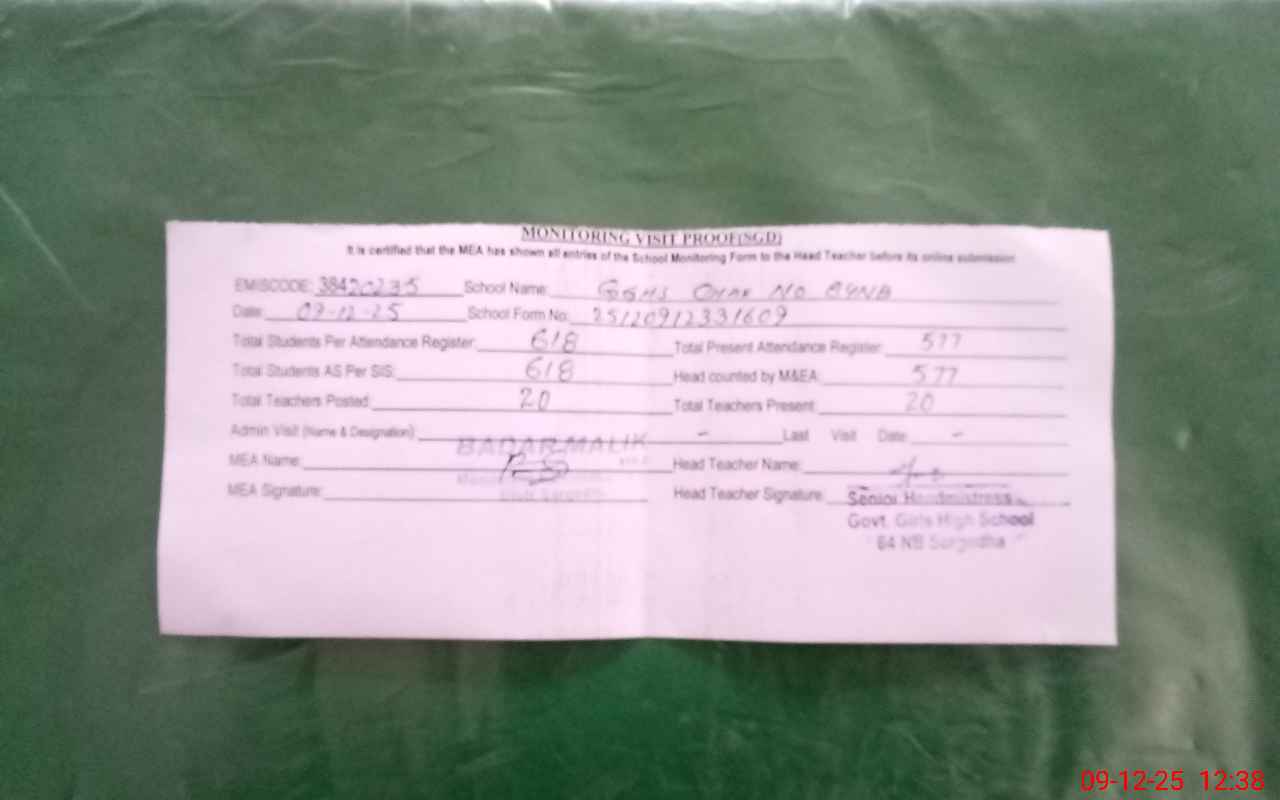 MONITORING VISIT PROOF(SGD)
It is certified that the MEA has shown all entries of the School Monitoring Form to the Head Teacher before its online submission
EMISCODE: 38420235 School Name: GGHS CHAK NO 64NB
Date: 09-12-25 School Form No: 25120912331609
Total Students Per Attendance Register: 618 Total Present Attendance Register: 577
Total Students AS Per SIS: 618 Head counted by M&EA: 577
Total Teachers Posted: 20 Total Teachers Present: 20
Admin Visit (Name & Designation) - Last Visit Date: -
BADAR MALIK
MEA Name: Head Teacher Name:
MEA Signature: Head Teacher Signature: Senior Headmistress
Govt. Girls High School
64 NB Sargodha
09-12-25 12:38